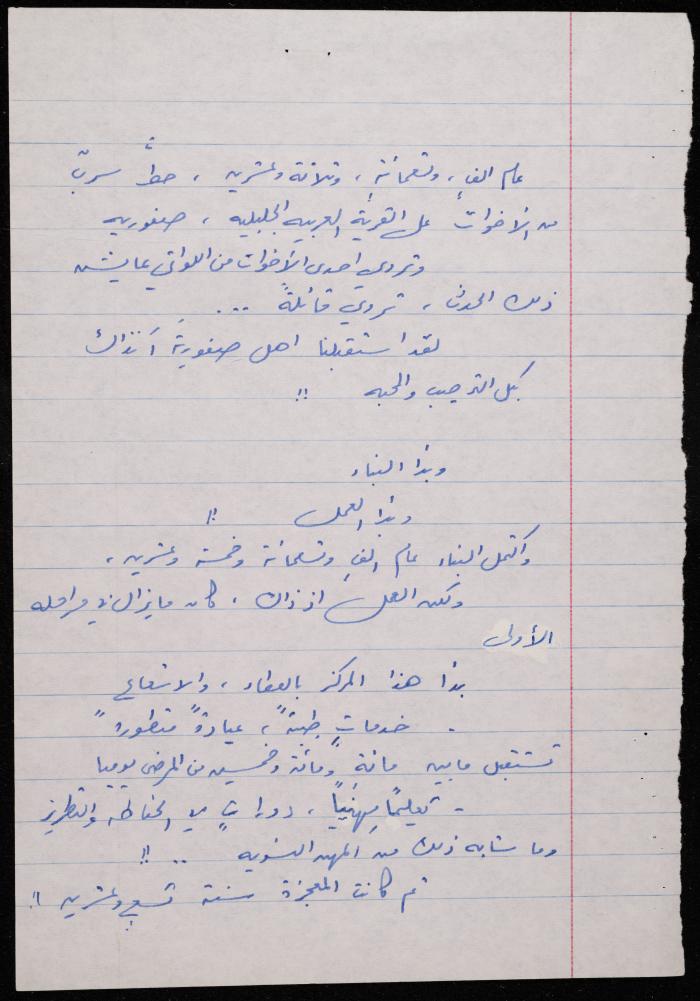 عام الفٍ، وتسعمائةٍ، وثلاثة وعشرين، حطَّ سربٌ
من الأخواتُ على القريةِ العربيه الجليليه، صفوريه
وتروي احدى الأخوات من اللواتي عايشن
ذلك الحدث، تروي قائلةً ...
لقد استقبلنا اهل صفوريةَ آنذاك
بكل الترحيب والمحبه !!
وبدأ البناء
وبدأ العمل !!
واكتمل البناء عام الفٍ وتسعمائة وخمسة وعشرين،
ولكن العمل اذ ذاك، كان ما يزال في مراحله
الأولى
بدأ هذا المركز بالعطاء، والاشعاع
- خدماتٍ طبيةً، عيادةً متطورةً
تستقبل ما بين مائةٍ ومائة وخمسين من المرضى يوميا
- تعليمًا مهنيّاً، دورات في الخياطه والتطريز
وما شابه ذلك من المهن النسويه .. !!
ثم كانت المعجزة سنة تسعٍ وعشرين !!